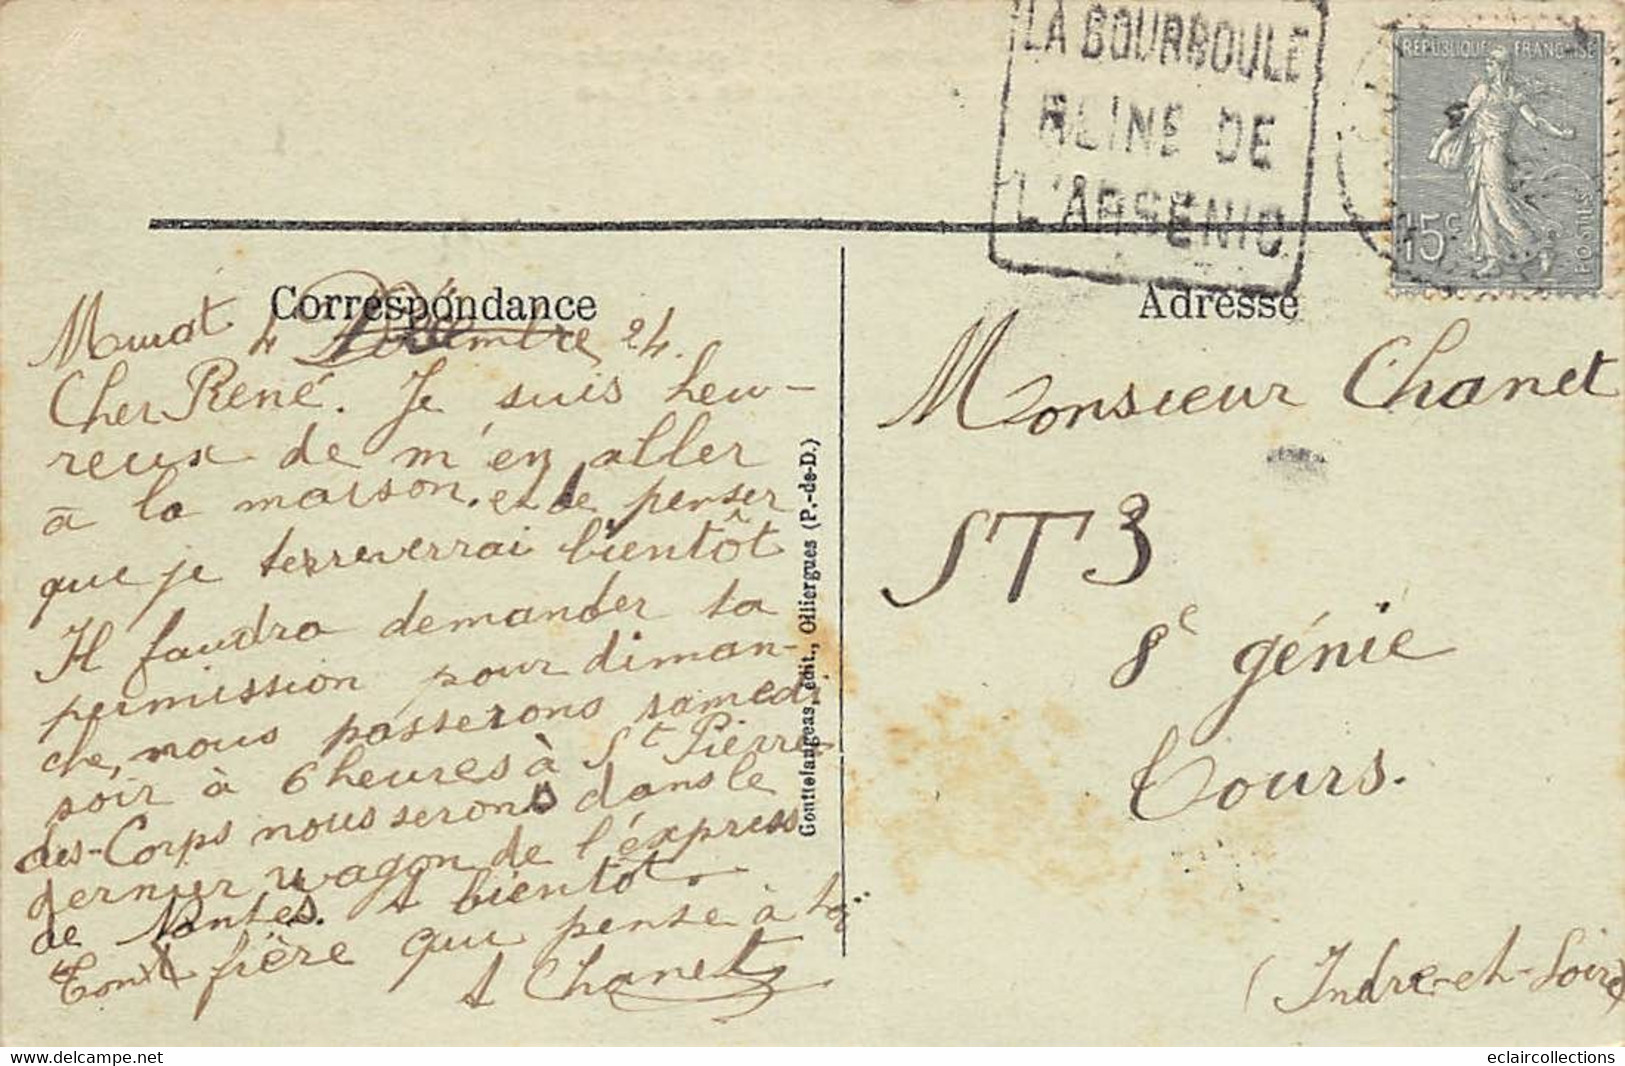 LA BOURBOULE
REINE DE
L'ARSENIC
REPUBLIQUE FRANCAISE
15c
POSTES
Correspondance
Adresse
Murat 4 Décembre 24.
Cher René. Je suis heu-
reux de m'en aller
à la maison. et de penser
que je te reverrai bientôt
Il faudra demander ta
permission pour diman-
che, nous passerons samedi
soir à 6 heures à St Pierre
des-Corps nous serons dans le
dernier wagon de l'éxpress
de Nantes. A bientôt.
Ton frère qui pense à toi
A Chanet
Gouttelangeas, édit., Olliergues (P.-de-D.)
Monsieur Chanet
ST3
8e génie
Tours.
(Indre-et-Loire)
www.delcampe.net
eclaircollections